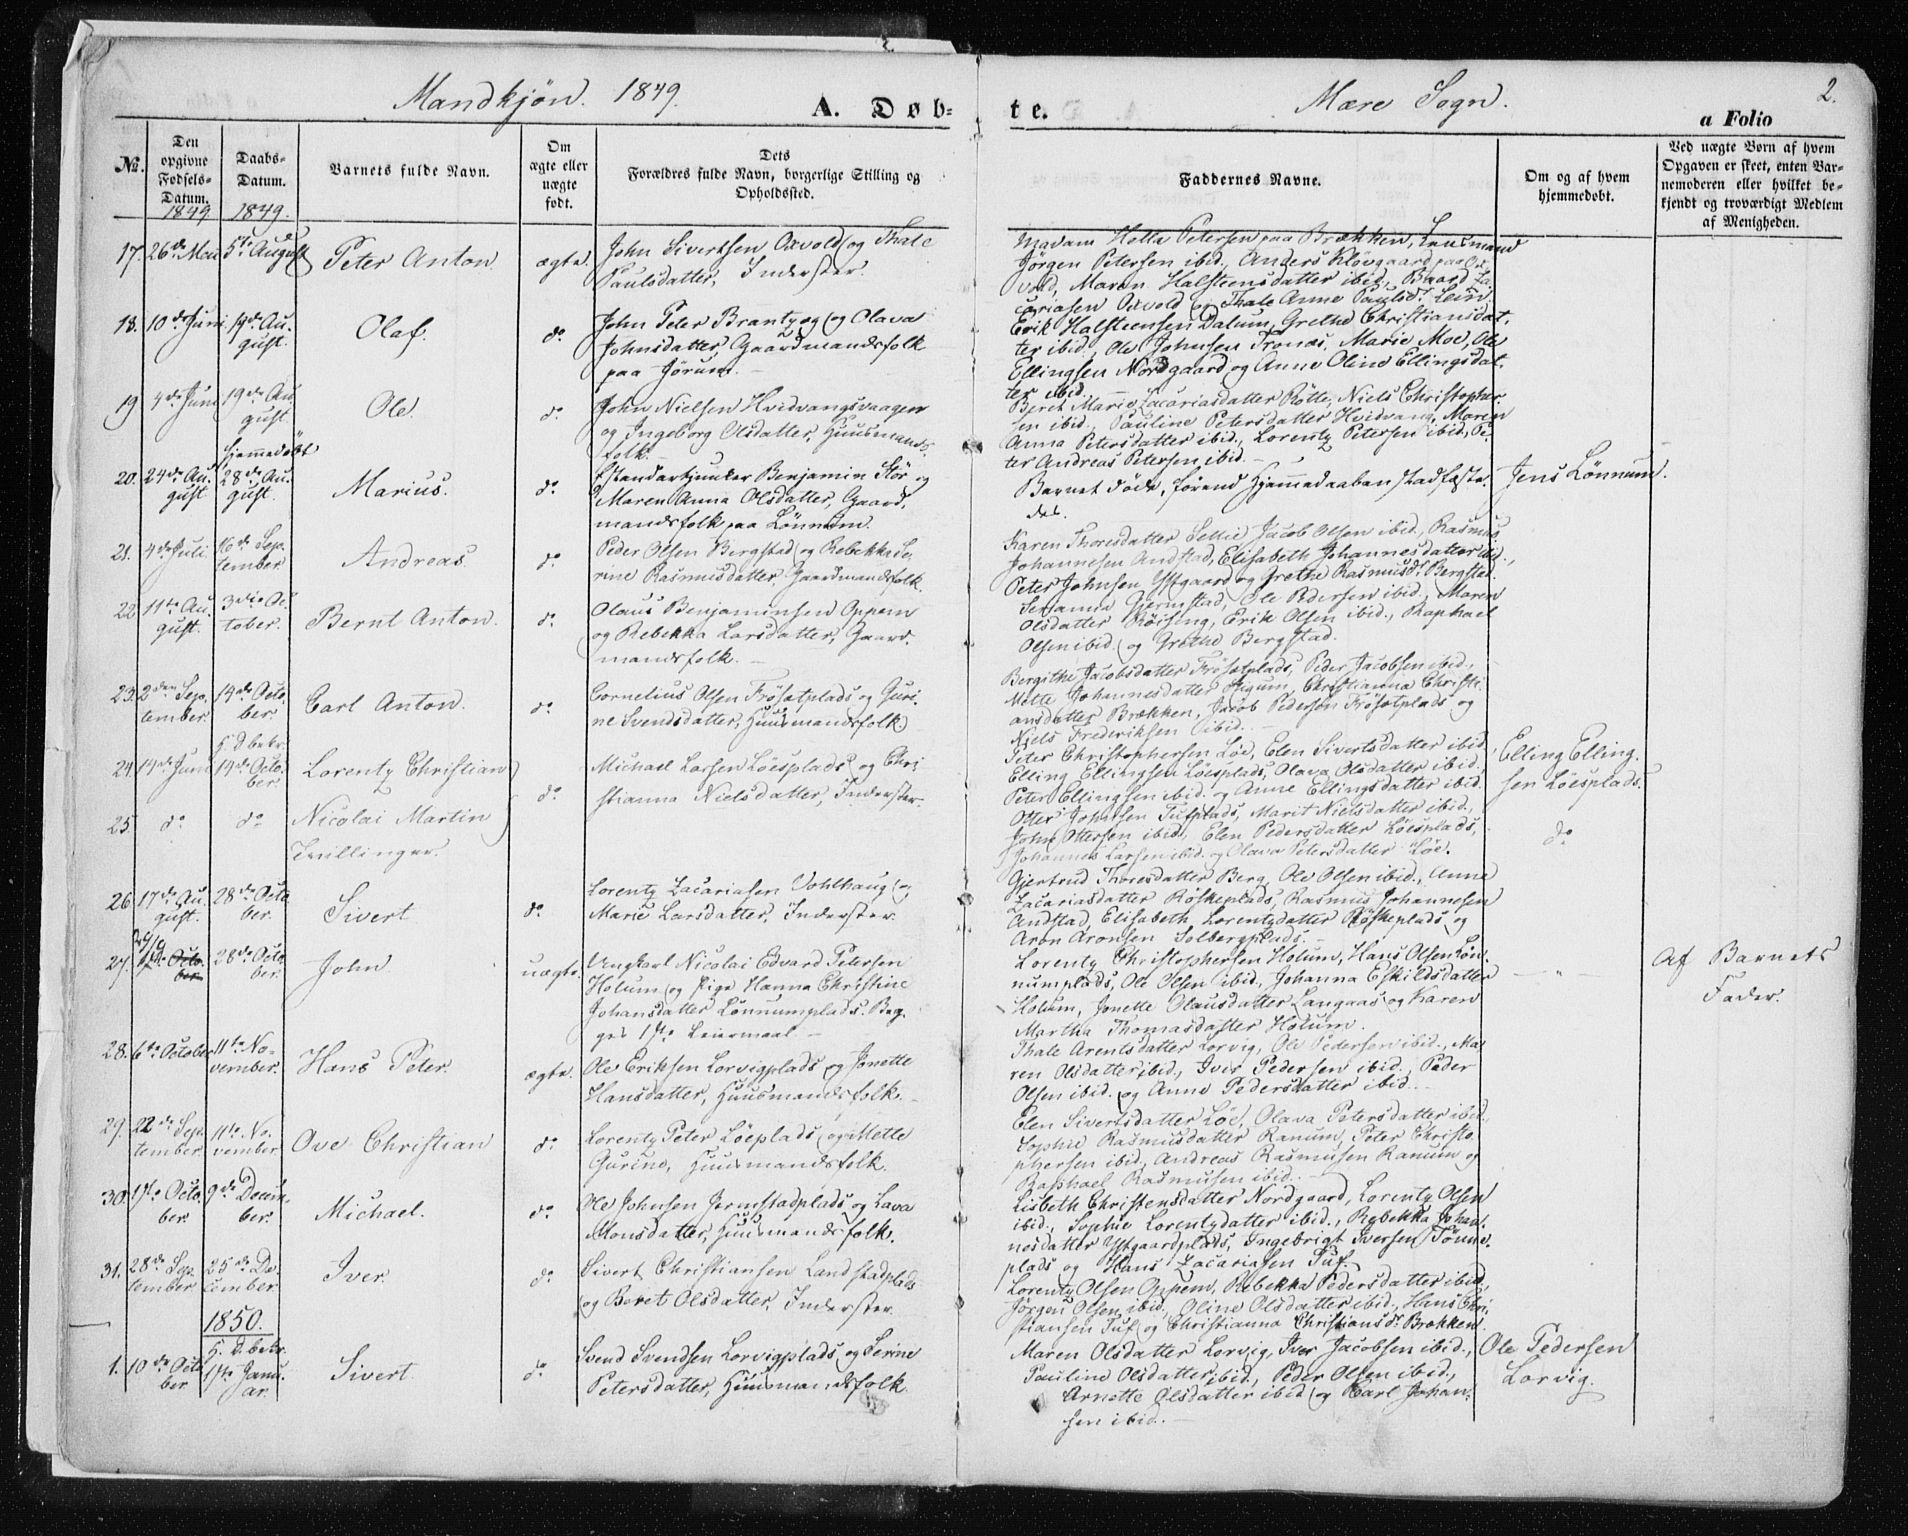 Mandkjøn. 1849.
A. Døbte.
Mære Sogn.
2.
a Folio
No.
Den opgivne Fødsels-Datum.
1849
Daabs-Datum.
1849.
Barnets fulde Navn.
Om ægte eller uægte født.
Dets Forældres fulde Navn, borgerlige Stilling og Opholdssted.
Faddernes Navne.
Om og af hvem hjemmedøbt.
Ved uægte Børn af hvem Opgaven er skeet, enten Barnemoderen eller hvilket bekjendt og troværdigt Medlem af Menigheden.
17. 26de Mai 5te August Peter Anton. ægte.
John Sivertsen Oxvold og Thale
Paulsdatter, Inderster.
Madam Petersen paa Brækken, Lensmand
Jørgen Petersen ibid., Anders Kløvgaard paa Ox-
vold, Maren Halsteensdatter ibid., Baard Za-
cariasen Oxvold og Thale Anne Paulsdr. Lein.
18. 10de Juni 19de August. Olaf. do
John Peter Brantzæg og Olava
Johnsdatter, Gaardmandsfolk
paa Jørum.
Erik Halsteensen Dalum, Grethe Christiansdat-
ter ibid., Ole Johnsen Tronæs, Marie Moe, Ole
Ellingsen Nordgaard og Anne Oline Ellingsdat-
ter ibid.
19 4de Juni 19de August. Ole. do
John Nielsen Hvidvangsvaagen
og Ingeborg Olsdatter, Huusmands-
folk.
Beret Marie Zacariasdatter Rötte, Niels Christopher-
sen ibid., Pauline Petersdatter Hvidvang, Maren
Anna Petersdatter ibid., Lorentz Petersen ibid., Pe-
ter Andreas Petersen ibid.
20. 24de August hjemmedøbt 28de August. Marius. do
Standartjunker Benjamin Stör og
Maren Anna Olsdatter, Gaard-
mandsfolk paa Lönnum.
Barnet döde, förend Hjemmedaaben stadfæste-
des.
Jens Lönnum.
21. 4de Juli 16de September Andreas do
Peder Olsen Bergstad og Rebekka Se-
rine Rasmusdatter, Gaardmandsfolk.
Karen Thoresdatter Sellie, Jacob Olsen ibid., Rasmus
Johannesen Andstad, Elisabeth Johannesdatter ibid.,
Peter Johnsen Ystgaard og Grethe Rasmusdr. Bergstad.
22 11te August. 3die October. Bernt Anton. do
Olaus Benjaminsen Oppem
og Rebekka Larsdatter, Gaard-
mandsfolk.
Gjermstad, Ole Pedersen ibid., Maren
Olsdatter Röising, Erik Olsen ibid., Raphael
Olsen ibid. og Grethe Bergstad.
23. 2den September. 14de October. Carl Anton. do
Cornelius Olsen Frösetplads og Guri-
ne Svendsdatter, Huusmandsfolk
Bergithe Jacobsdatter Frösetplads, Peder Jacobsen ibid.,
Mette Johannesdatter Rigum, Christianna Christi-
ansdatter Brækken, Jacob Pedersen Frösetplads og
Niels Frederiksen ibid.
24. 14de Juni H. D. bekr. 14de October. Lorentz Christian do
Michael Larsen Löesplads og Chri-
stianna Nielsdatter, Inderster.
Peter Christophersen Löe, Elen Sivertsdatter ibid.,
Elling Ellingsen Löesplads, Olava Olsdatter ibid.,
Peter Ellingsen ibid. og Anne Ellingsdatter ibid.
Elling Elling-
sen Löesplads.
25. do do Nicolai Martin
Tvillinger.
Otter Johnsen Tufplads, Marit Nielsdatter ibid.,
John Ottersen ibid., Elen Pedersdatter Löesplads,
Johannes Larsen ibid. og Olava Petersdatter Löe.
do
26 17de August. 28de October. Sivert do
Lorentz Zacariasen Vohlhaug og
Marie Larsdatter, Inderster.
Gjertrud Thoresdatter Berg, Ole Olsen ibid., Anne
Zacariasdatter Röskeplads, Rasmus Johannesen
Andstad, Elisabeth Lorentzdatter Röskeplads og
Aron Aronsen Solbergplads.
27. 28de October. John uægte.
Ungkarl Nicolai Edvard Petersen
Holum og Pige Hanna Christine
Johansdatter Lönnumplads. Beg-
ges 1ste Leiermaal.
Lorentz Christophersen Holum, Hans Olsen Lön-
numplads, Ole Olsen ibid., Johanna Eskildsdatter
Holum, Jonette Olausdatter Langaas og Karen
Martha Thomasdatter Holum.
Af Barnets
Fader.
28. 6te October 11te November. Hans Peter ægte.
Ole Eriksen Lorvigplads og Jonette
Hansdatter, Huusmandsfolk.
Thale Arentsdatter Lorvig, Ole Pedersen ibid., Ma-
ren Olsdatter ibid., Iver Pedersen ibid., Peder
Olsen ibid. og Anne Pedersdatter ibid.
29. 22de September. 11te November. Ove Christian do
Lorentz Peter Löeplads og Mette
Gurine, Huusmandsfolk.
Elen Sivertsdatter Löe, Olava Petersdatter ibid.,
Sophie Rasmusdatter Ranum, Peter Christo-
phersen ibid., Andreas Rasmusen Ranum og
Raphael Rasmusen ibid.
30. 17de October. 9de December. Michael. do
Ole Johnsen Jermstadplads og Lava
Monsdatter, Huusmandsfolk.
Lisbeth Christensdatter Nordgaard, Lorentz Olsen
ibid., Sophie Lorentzdatter ibid., Rebekka Johan-
nesdatter Ystgaardplads, Ingebrigt Iversen Tönne-
plads og Hans Zacariasen Tuf.
31. 28de September 25de December. Iver. do
Sivert Christiansen Landstadplads
og Beret Olsdatter, Inderster.
Lorentz Olsen Oppem, Rebekka Pedersdatter ibid.,
Jörgen Olsen ibid., Oline Olsdatter ibid., Hans Chri-
stiansen Tuf og Christianna Christiansdr. Brækken.
1850.
1. 10de October H. D. bekr. 1ste Januar. Sivert do
Svend Svendsen Lorvigplads og Serine
Petersdatter, Huusmandsfolk
Maren Olsdatter Lorvig, Iver Jacobsen ibid.,
Pauline Olsdatter ibid., Peder Olsen ibid.,
Arnette Olsdatter ibid. og Carl Johan-
sen ibid.
Ole Pedersen
Lorvig.